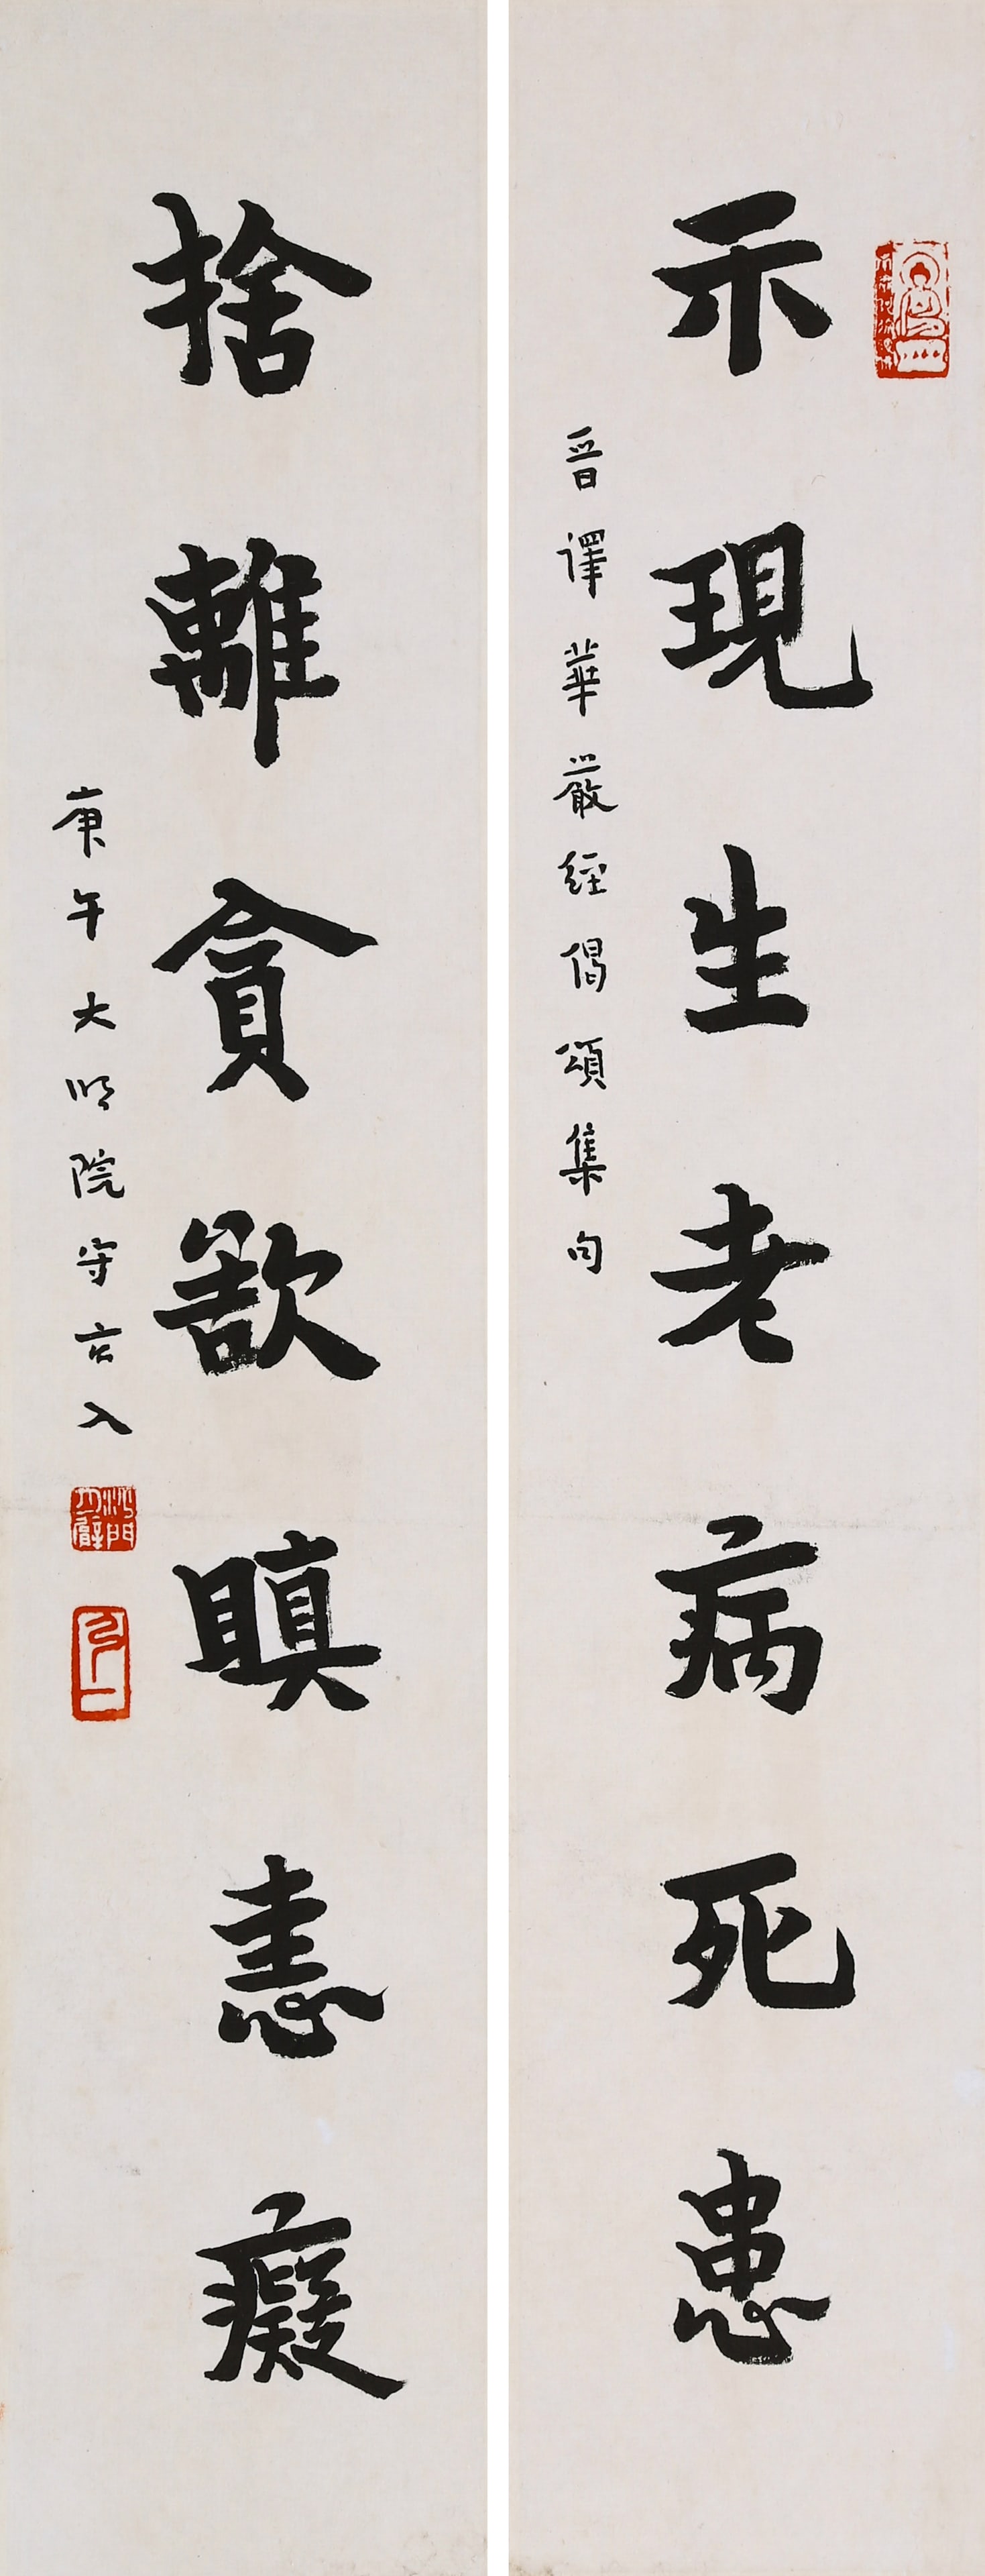 示現生老病死患
晉譯華嚴經偈頌集句
捨離貪欲瞋恚癡
庚午大明院玄入
沙門月臂
弘一